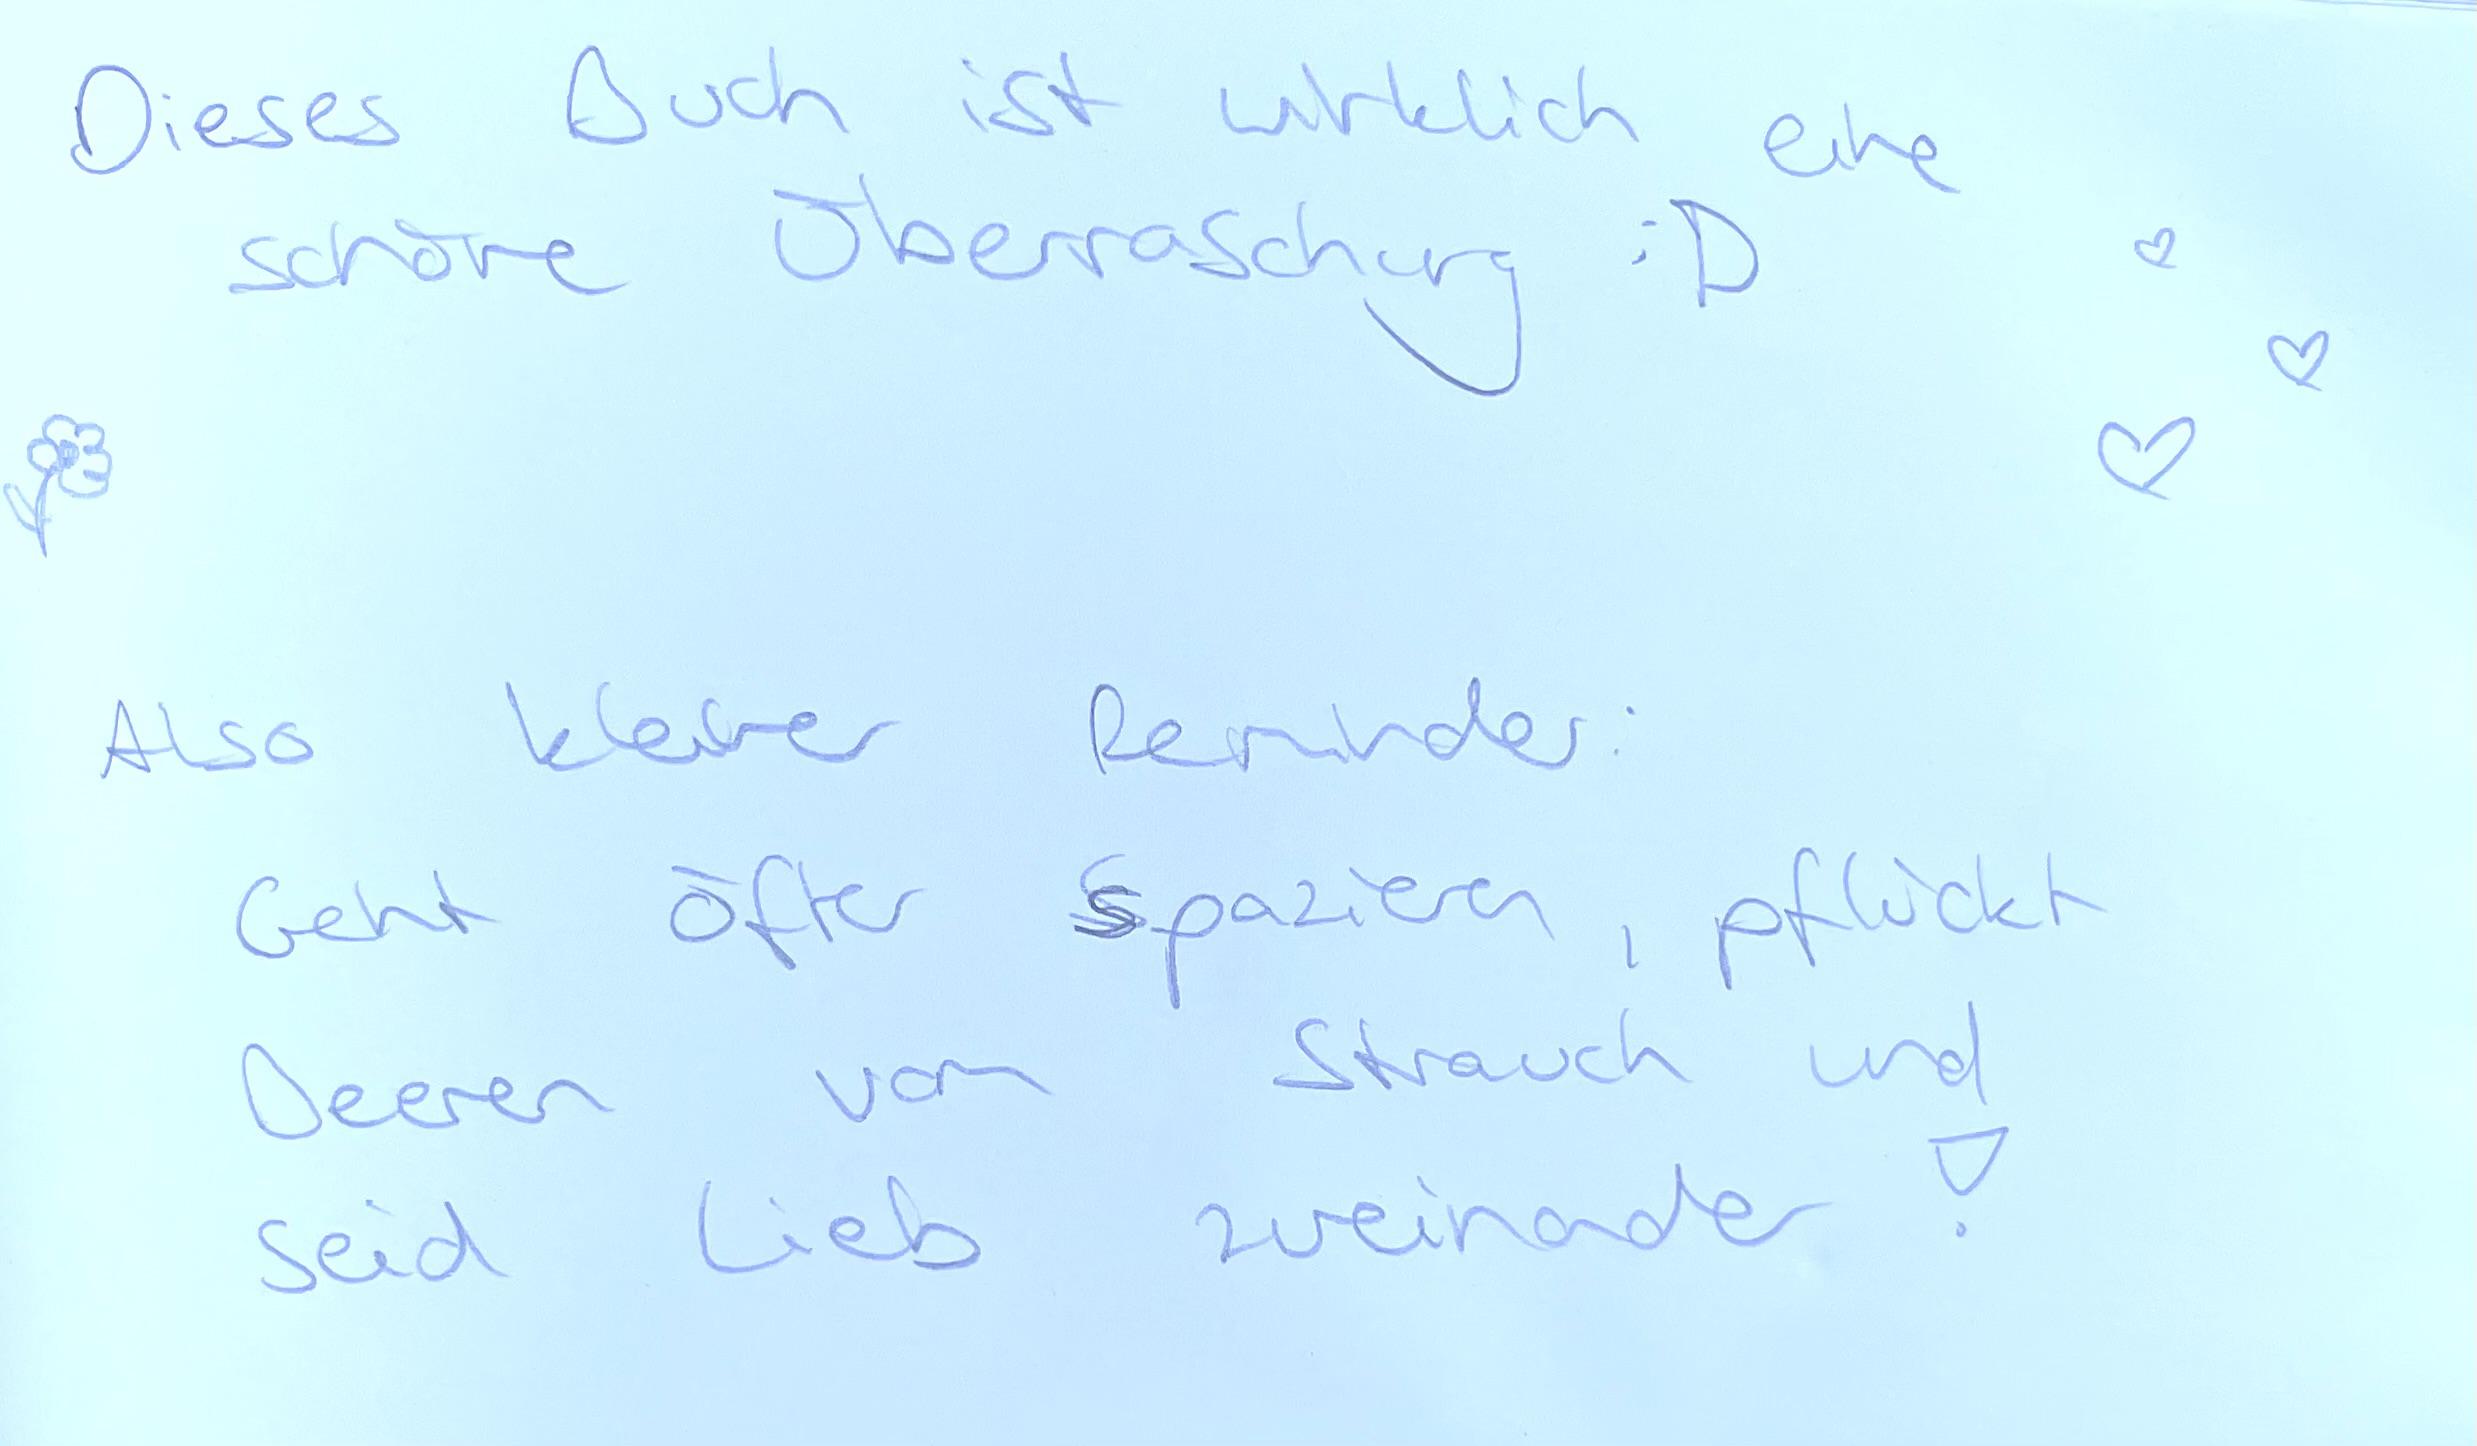 Dieses Buch ist wirklich eine
schöne Überraschung :D
Also kleiner Reminder:
Geht öfter spazieren, pflückt
Beeren vom Strauch und
seid lieb zueinander!